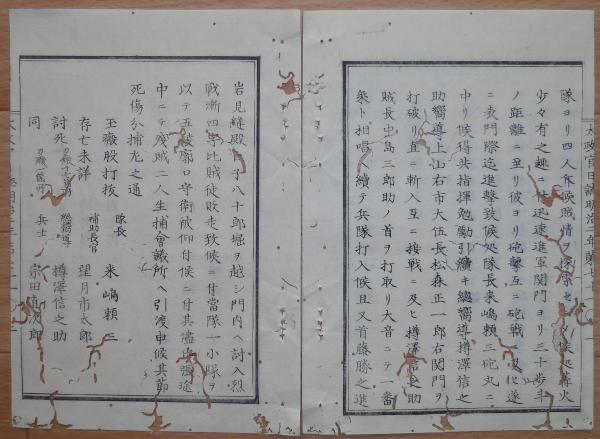 太政官日誌明治二年第七十
隊ヨリ四人斥候賊情ヲ探索セシメ候処篝火
少々有之趣ニ付迅速進軍関門ヨリ三十歩斗
ノ距離ニ至リ彼ヨリ砲撃互ニ砲戦ニ及ヒ遂
ニ表門際迄進撃致候処隊長来嶋頼三砲丸ニ
中リ候得共指揮勉励引續キ總嚮導樽澤信之
助嚮導上山右市大伍長松森正一郎右関門ヲ
打破リ直ニ斬入互ニ接戦ニ及ヒ樽澤信之助
賊長中島三郎助ノ首ヲ打取リ大音ニテ一番
乗ト相唱ヘ續テ兵隊打入候且又首藤勝之進
岩見縫殿 八十郎堀ヲ越シ門内ヘ討入烈
戦漸四 比賊徒敗走致候ニ付當隊一小隊ヲ
以テ五稜廓口守衛被仰付候ニ付其儘出張途
中ニテ残賊二人生捕會議所ヘ引渡申候其節
死傷分捕左之通
玉瘢股打抜 隊長 来嶋頼三
存亡未詳 補助長官 望月市太郎
討死 總嚮導 樽澤信之助
同 兵士 宗田 次郎